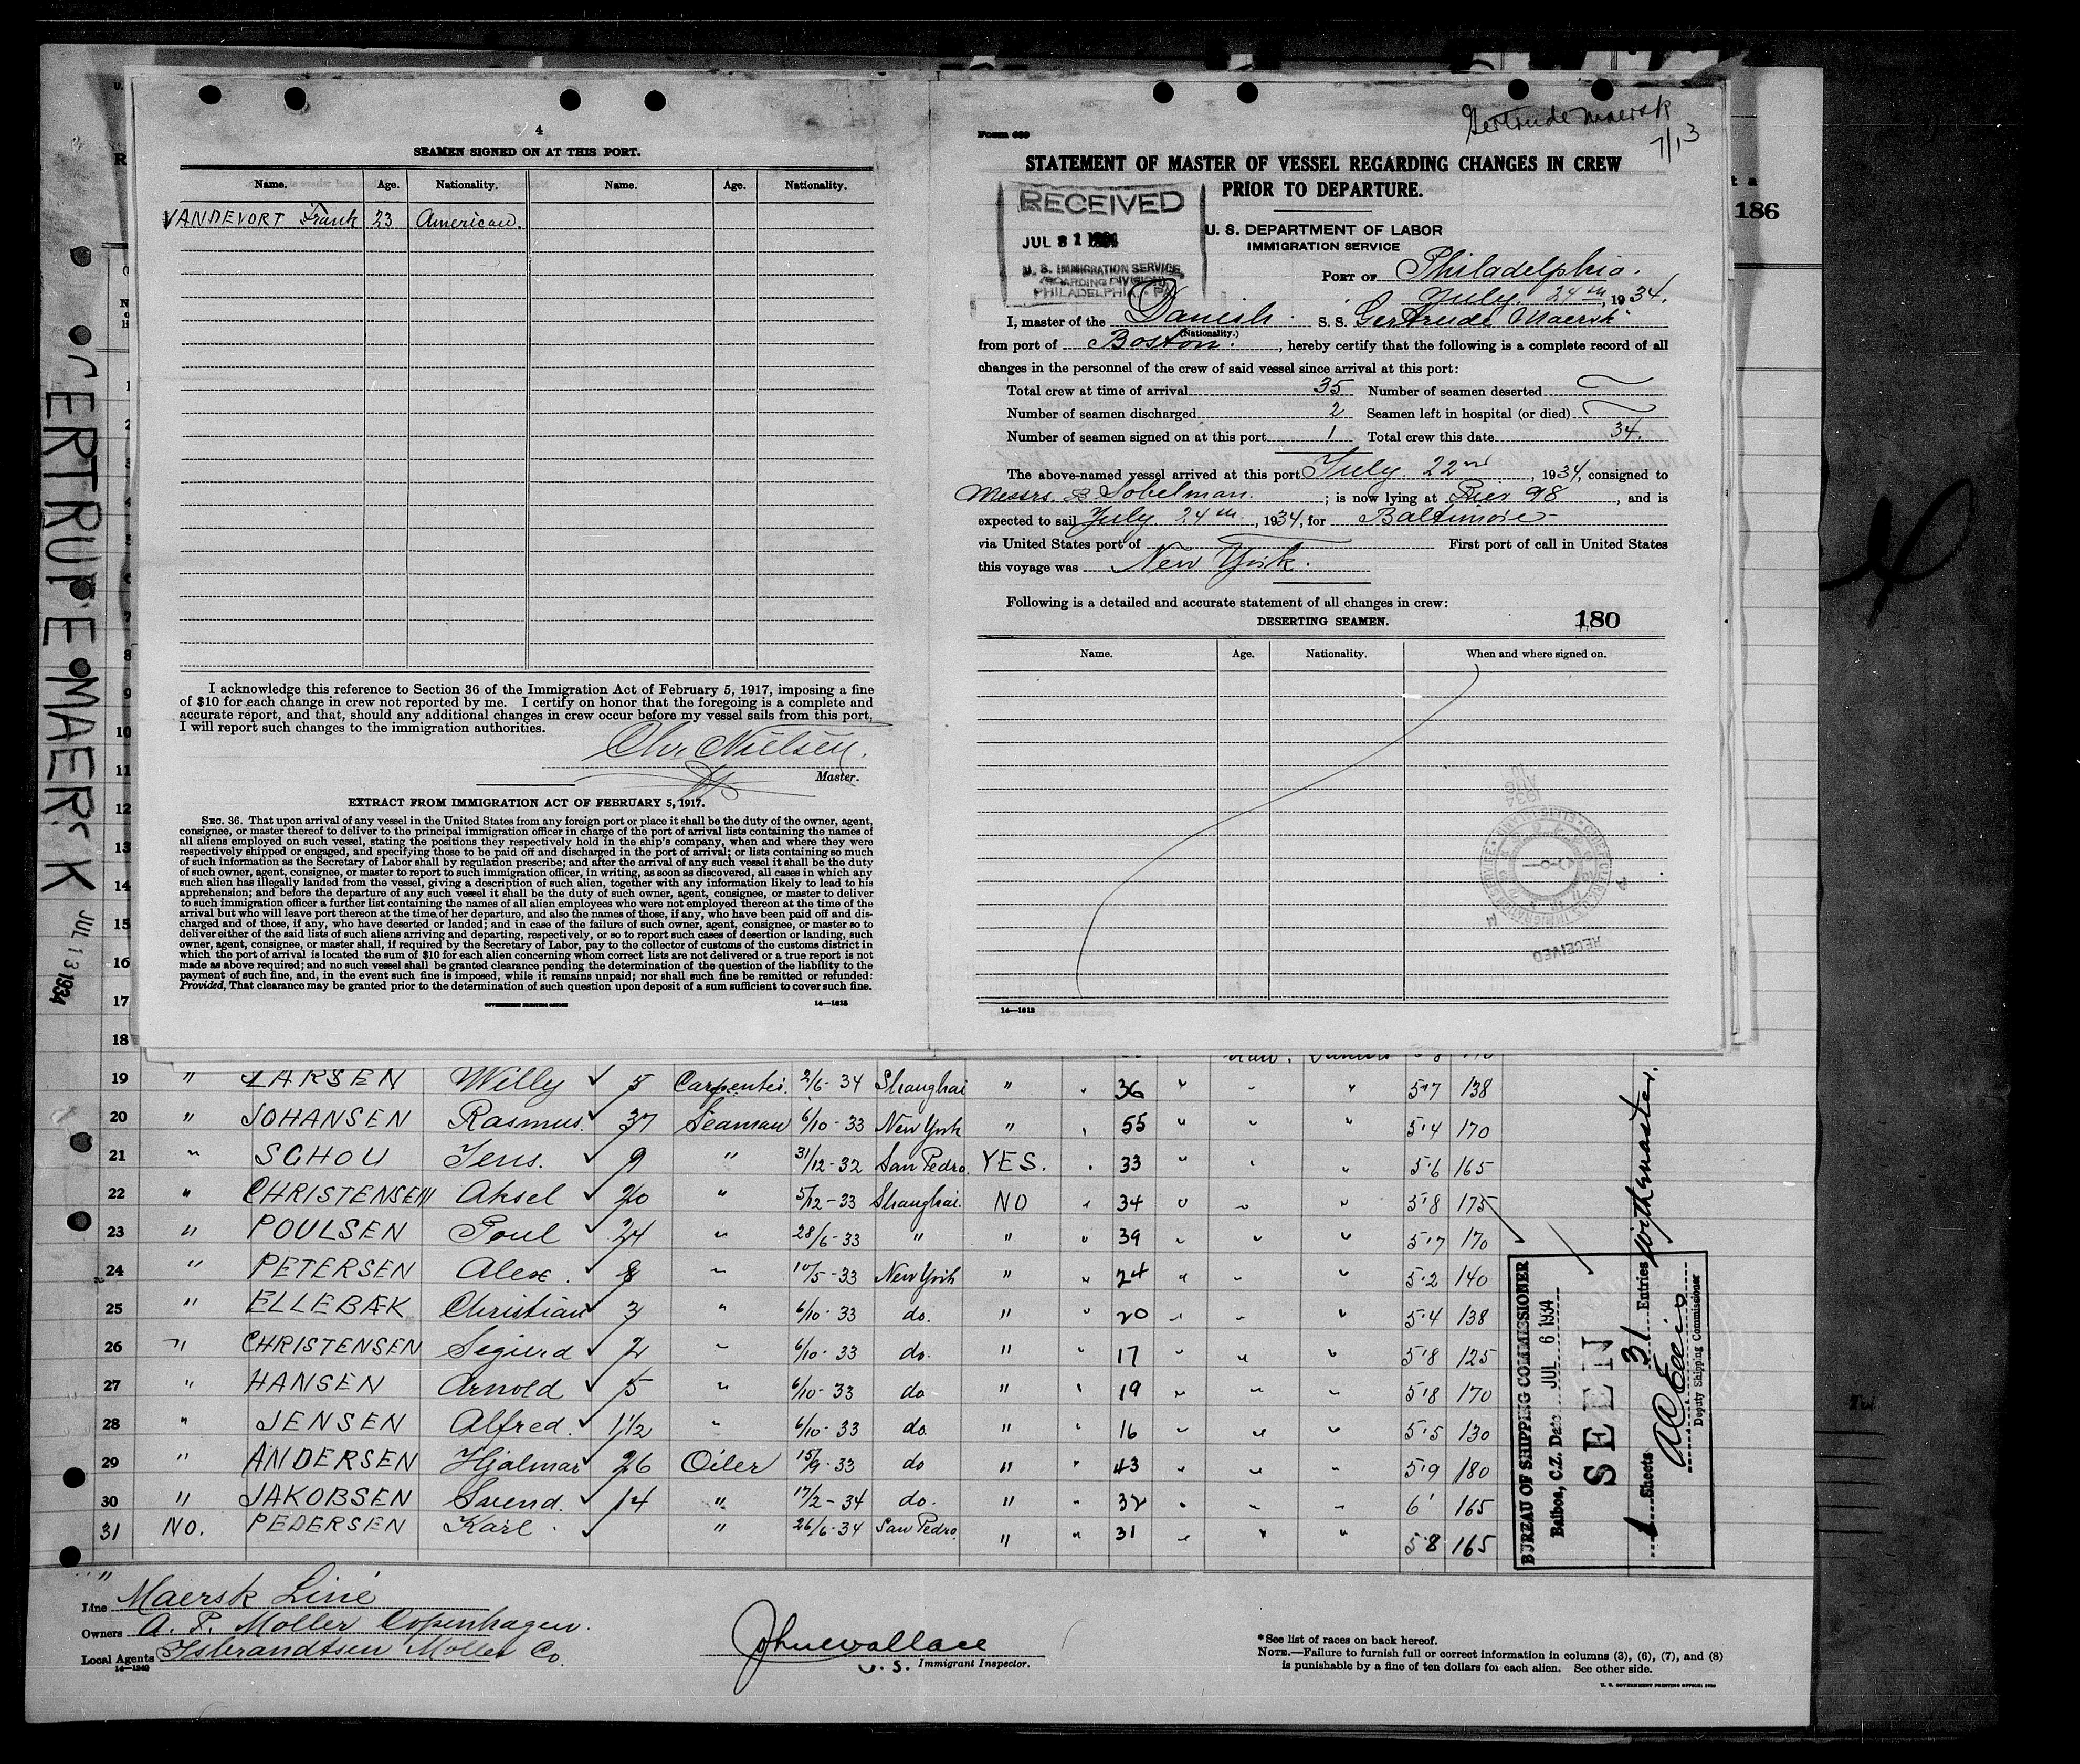 4
SEAMEN SIGNED ON AT THIS PORT.
Name. Age. Nationality. Name. Age. Nationality.
VANDEVORT Frank 23 American.
I acknowledge this reference to Section 36 of the Immigration Act of February 5, 1917, imposing a fine
of $10 for each change in crew not reported by me. I certify on honor that the foregoing is a complete and
accurate report, and that, should any additional changes in crew occur before my vessel sails from this port,
I will report such changes to the immigration authorities.
Chr. Nielsen.
Master.
EXTRACT FROM IMMIGRATION ACT OF FEBRUARY 5, 1917.
SEC. 36. That upon arrival of any vessel in the United States from any foreign port or place it shall be the duty of the owner, agent,
consignee, or master thereof to deliver to the principal immigration officer in charge of the port of arrival lists containing the names of
all aliens employed on such vessel, stating the positions they respectively hold in the ship's company, when and where they were
respectively shipped or engaged, and specifying those to be paid off and discharged in the port of arrival; or lists containing so much
of such information as the Secretary of Labor shall by regulation prescribe; and after the arrival of any such vessel it shall be the duty
of such owner, agent, consignee, or master to report to such immigration officer, in writing, as soon as discovered, all cases in which any
such alien has illegally landed from the vessel, giving a description of such alien, together with any information likely to lead to his
apprehension; and before the departure of any such vessel it shall be the duty of such owner, agent, consignee, or master to deliver
to such immigration officer a further list containing the names of all alien employees who were not employed thereon at the time of the
arrival but who will leave port thereon at the time of her departure, and also the names of those, if any, who have been paid off and dis-
charged and of those, if any, who have deserted or landed; and in case of the failure of such owner, agent, consignee, or master so to
deliver either of the said lists of such aliens arriving and departing, respectively, or so to report such cases of desertion or landing, such
owner, agent, consignee, or master shall, if required by the Secretary of Labor, pay to the collector of customs of the customs district in
which the port of arrival is located the sum of $10 for each alien concerning whom correct lists are not delivered or a true report is not
made as above required; and no such vessel shall be granted clearance pending the determination of the question of the liability to the
payment of such fine, and, in the event such fine is imposed, while it remains unpaid; nor shall such fine be remitted or refunded:
Provided, That clearance may be granted prior to the determination of such question upon deposit of a sum sufficient to cover such fine.
GOVERNMENT PRINTING OFFICE 14—1613
Gertrude Maersk
7/13
Form 689
STATEMENT OF MASTER OF VESSEL REGARDING CHANGES IN CREW
PRIOR TO DEPARTURE.
RECEIVED
JUL 31 1934
U. S. IMMIGRATION SERVICE,
BOARDING DIVISION,
PHILADELPHIA, PA.
U. S. DEPARTMENT OF LABOR
IMMIGRATION SERVICE
PORT OF Philadelphia.
July. 24th, 1934.
I, master of the Danish. S. S. Gertrude Maersk
(Nationality.)
from port of Boston., hereby certify that the following is a complete record of all
changes in the personnel of the crew of said vessel since arrival at this port:
Total crew at time of arrival 35 Number of seamen deserted
Number of seamen discharged 2 Seamen left in hospital (or died)
Number of seamen signed on at this port 1 Total crew this date 34.
The above-named vessel arrived at this port July. 22nd, 1934, consigned to
Messrs. B Sobelman.; is now lying at Pier 98, and is
expected to sail July. 24th, 1934, for Baltimore
via United States port of First port of call in United States
this voyage was New York.
Following is a detailed and accurate statement of all changes in crew:
180
DESERTING SEAMEN.
Name. Age. Nationality. When and where signed on.
14—1613
186
GERTRUDE MAERSK
JUL 13 1934
1
2
8
9
10
11
12
13
14
15
16
17
18
19 " LARSEN Willy 5 Carpenter. 2/6-34 Shanghai " 36 " " " 5'7 138
20 " JOHANSEN Rasmus. 37 Seaman 6/10-33 New York " 55 " " 5'4 170
21 " SCHOU Jens. 9 " 31/12-32 San Pedro. YES. 33 " " 5'6 165
22 " CHRISTENSEN Aksel 20 " 5/12-33 Shanghai. NO 34 " " " 5'8 175
23 " POULSEN Poul 24 " 28/6-33 " " 39 " " " 5'7 170
24 " PETERSEN Alex. 8 " 10/5-33 New York " 24 " " " 5'2 140
25 " ELLEBÆK Christian 3 " 6/10-33 do. " 20 " " " 5'4 138
26 " CHRISTENSEN Sigurd 2 " 6/10-33 do. " 17 " " " 5'8 125
27 " HANSEN Arnold 5 " 6/10-33 do " 19 " " " 5'8 170
28 " JENSEN Alfred. 1 1/2 " 6/10-33 do " 16 " " " 5'5 130
29 " ANDERSEN Hjalmar 26 Oiler 15/9-33 do " 43 " " " 5'9 180
30 " JAKOBSEN Svend. 14 " 17/2-34 do. " 32 " " " 6' 165
31 NO. PEDERSEN Karl. " 26/6-34 San Pedro. " 31 " " " 5'8 165
BUREAU OF SHIPPING COMMISSIONER
Balboa, C.Z. Date JUL 6 1934
SEEN
1 Sheets 31 Entries
Deputy Shipping Commissioner
Line Maersk Line
Owners A. P. Moller Copenhagen.
Local Agents Isbrandtsen Moller Co.
14—1240
John Wallace
U. S. Immigrant Inspector.
*See list of races on back hereof.
NOTE.—Failure to furnish full or correct information in columns (3), (6), (7), and (8)
is punishable by a fine of ten dollars for each alien. See other side.